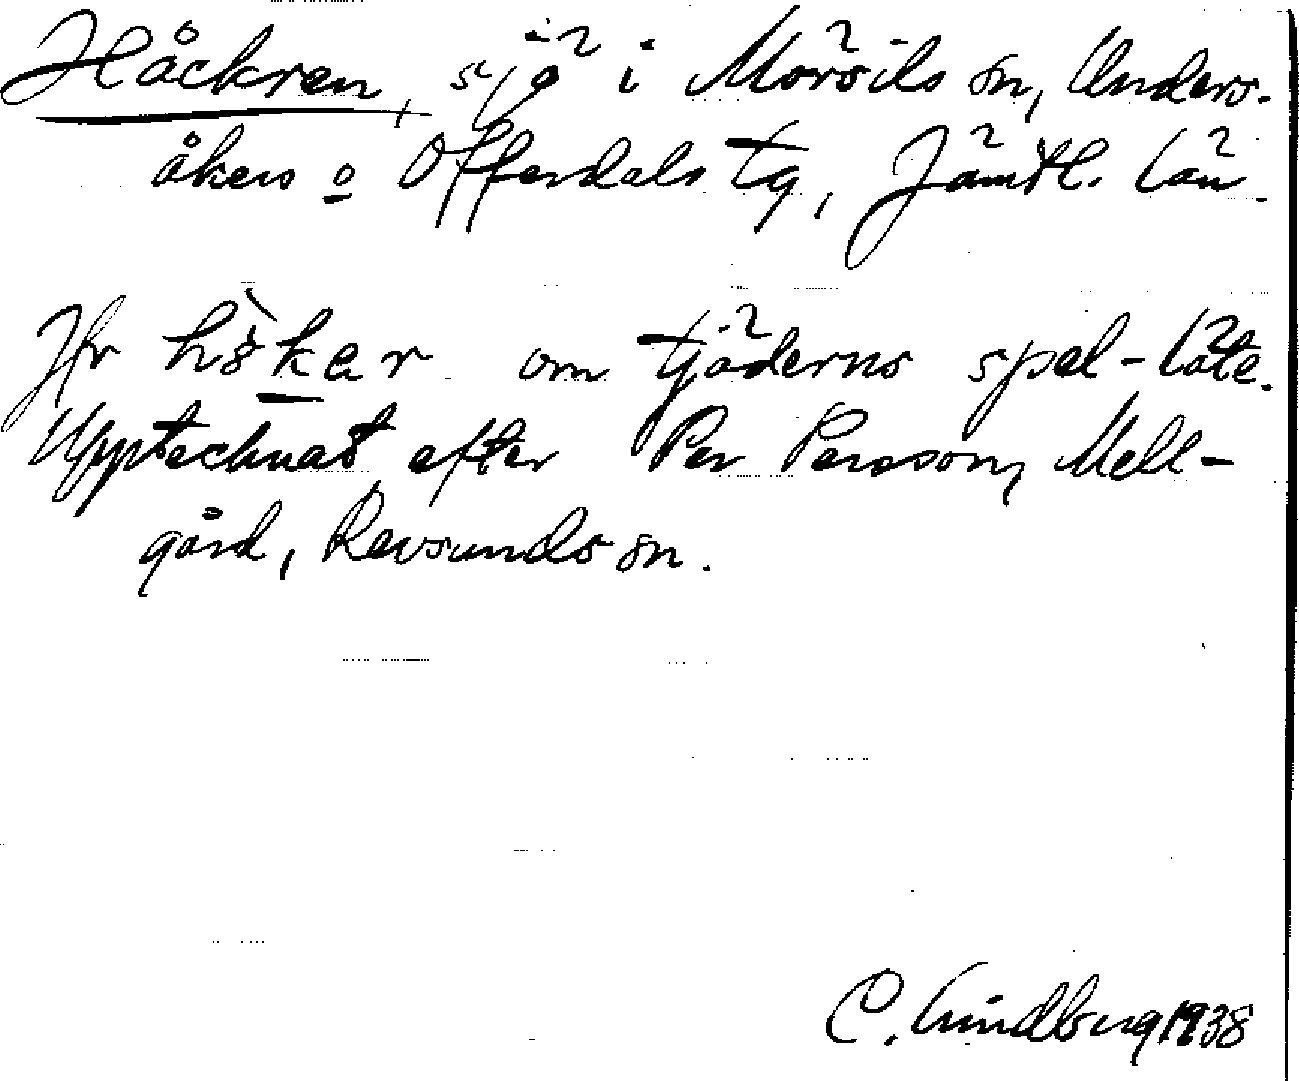 Håckren, sjö i Mörsils sn, Unders-
åkers o Offerdals tg, Jämtl. län.
Jfr håker om tjäderns spel-läte.
Upptecknat efter Per Persson, Mell-
gård, Revsunds sn.
C. Lindberg 1938